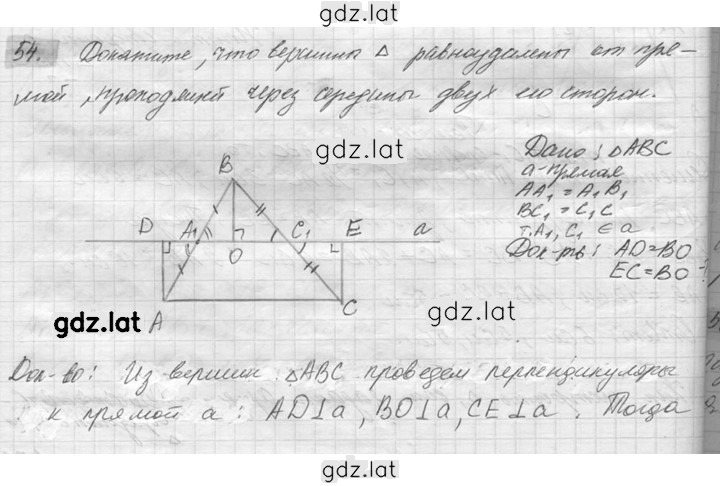 gdz.lat
54. Докажите, что вершины △ равноудалены от пря-
мой, проходящей через середины двух его сторон.
gdz.lat
Дано: △ABC
a-прямая
AA₁ = A₁B,
BC₁ = C₁C
т. A₁, C₁ ∈ a
Док-ть: AD=BO
EC=BO
B
D A₁ C₁ E a
O
A C
gdz.lat
gdz.lat
Док-во: Из вершин △ABC проведем перпендикуляры
к прямой a: AD⊥a, BO⊥a, CE⊥a. Тогда
gdz.lat